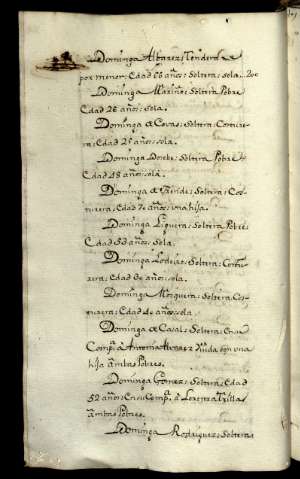 Dominga Albarez: Tendera
por menor: Edad 66 años: Soltera: sola
Dominga Mariño: Soltera Pobre
Edad 26 años: Sola.
Dominga de Casas: Soltera: Costure
ra: Edad 25 años: sola.
Dominga: Soltera Pobre
Edad 48 años: sola.
Dominga de: Soltera: Cos
turera: Edad 40 años: una hija.
Dominga: Soltera Pobre:
Edad 50 años: Sola.
Dominga: Soltera: Costu
rera: Edad años: sola.
Dominga Mosquera: Soltera Cos
turera: Edad años: sola
Dominga de Casal: Soltera: En su
Compª. â Antonia Alvarez Viuda con una
hija ambas Pobres.
Dominga Gomez: Soltera: Edad
52 años: En su Compª. â Lorenza Trillas
ambas Pobres.
Dominga Rodriguez: Soltera: